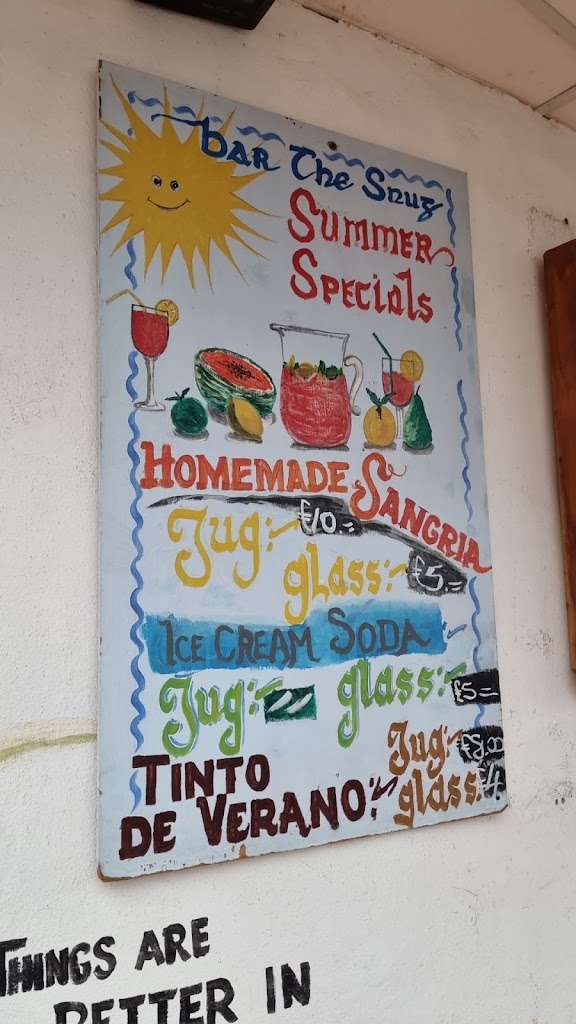 bar The Snug
Summer
Specials
HOMEMADE SANGRIA
Jug: £10=
glass: £5=
ICE CREAM SODA
Jug: glass: £5=
TINTO
DE VERANO:
Jug: £8.00
glass: £4
THINGS ARE
BETTER IN